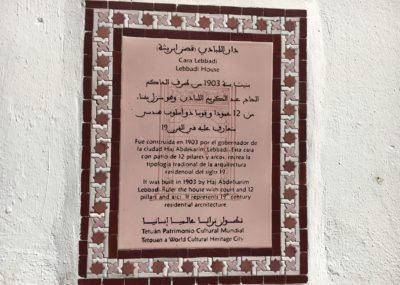 دار اللبادي (قصر بريشة)
Cara Lebbadi
Lebbadi House
بنيت سنة 1903 من طرف الحاكم
الحاج عبد الكريم اللبادي وهو منزل بفناء
من 12 عمودا وقوسا
متعارف عليه في القرن 19
Fue construida en 1903 por el gobernador de
la ciudad Haj Abdekarim Lebbadi. Esta cara
con patio de 12 pilares y arcor, recrea la
tipología tradional de la arquitectura
residencial del siglo 19.
It was built in 1903 by Haj Abdelkarim
Lebbadi Ruler the house with court and 12
pillars and arci. It represents 19th century
residential architecture.
تطوان تراثا عالميا إنسانيا
Tetuán Patrimonio Cultural Mundial
Tetouan a World Cultural Heritage City